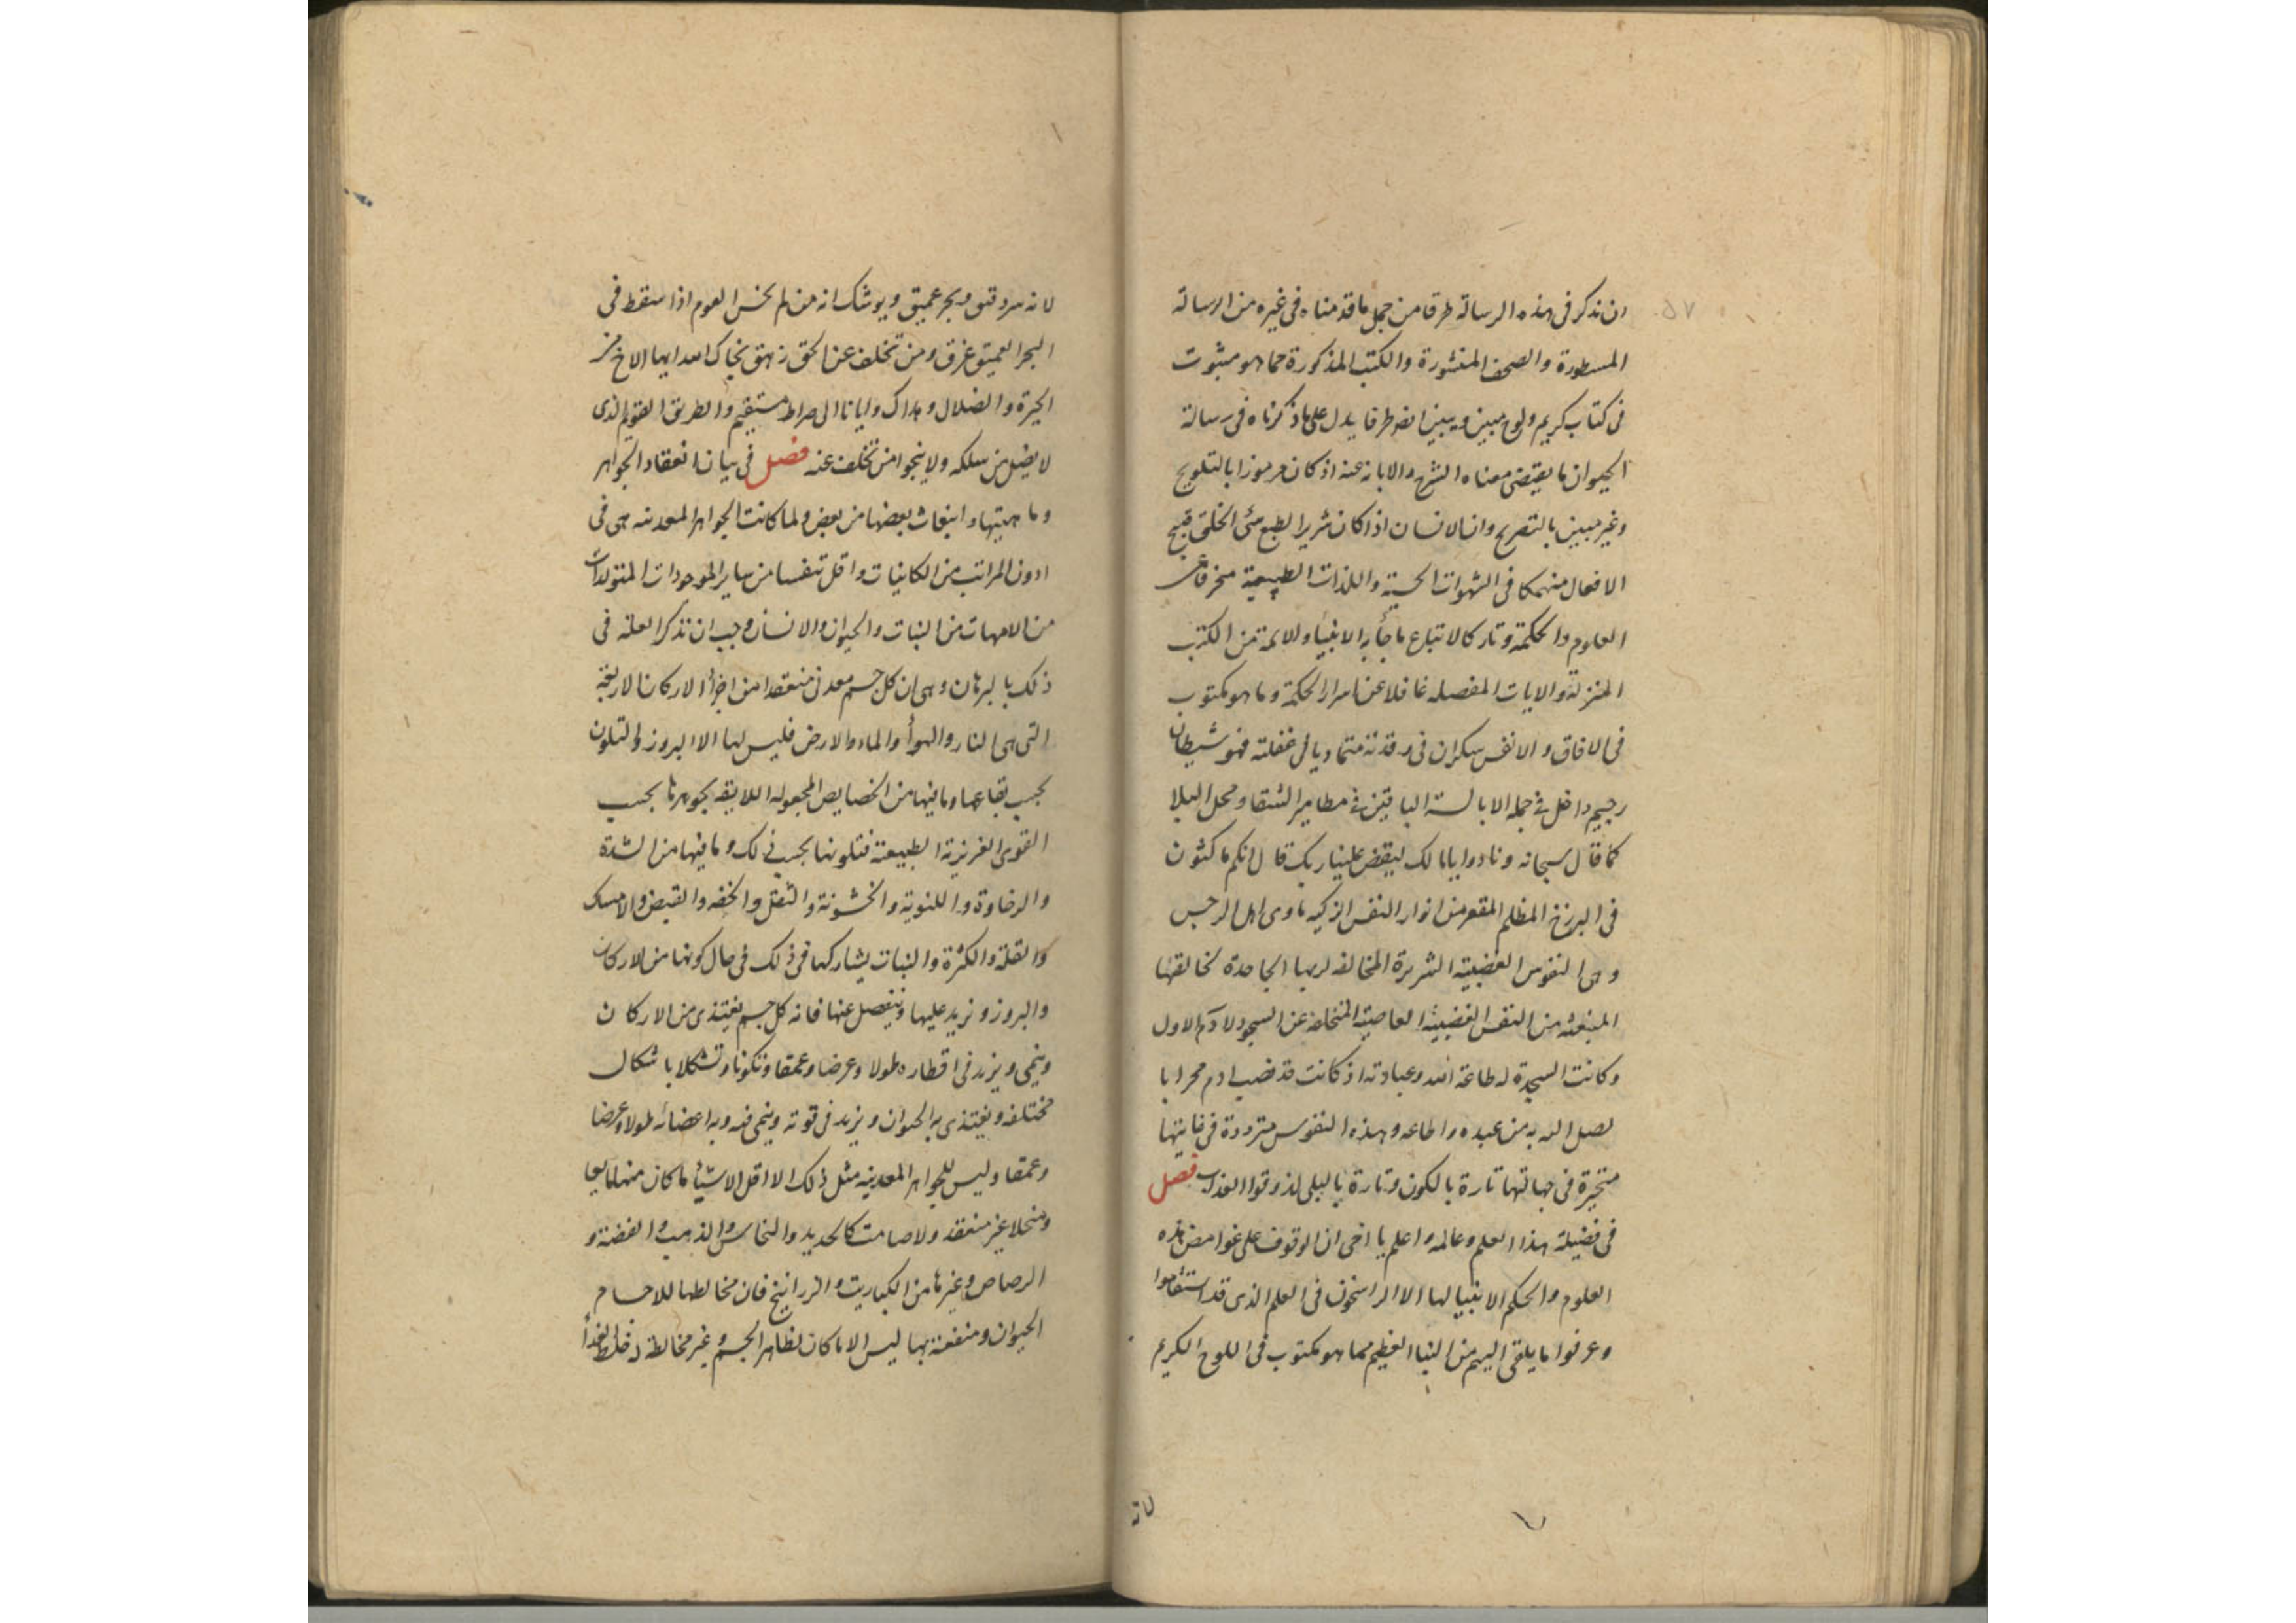 ان نذكر فى هذه الرسالة طرفا من جمل ما قدمناه فى غيره من الرسالة
المسطورة والصحف المنشورة والكتب المذكورة مما هو مثبوت
فى كتاب كريم ولوح مبين ويبين ايضا طرفا يدل على ما ذكرناه فى رسالة
الحيوان ما يقتضى معناه الشرح والابانة عنه اذ كان مرموزا بالتلويح
وغير مبين بالتصريح وان الانسان اذا كان شرير الطبع سئ الخلق قبيح
الافعال منهمكا فى الشهوات الحسية واللذات الطبيعية منحرفا عن
العلوم والحكمة وتاركا لاتباع ما جأ به الانبيأ والائمة من الكتب
المنزلة والايات المفصله غافلا عن اسرار الحكمة وما هو مكتوب
فى الافاق والانفس سكران فى رقدته متماديا فى غفلته فهو شيطان
رجيم داخل فى جملة الابالسة الباقين فى مطامير الشقا ومحل البلا
كما قال سبحانه ونادوا يا مالك ليقض علينا ربك قال انكم ماكثون
فى البرزخ المظلم المقعر من انوار النفس الزكيه ماوى اهل الرجس
وهى النفوس الغضبية الشريرة المخالفه لربها الجاحدة لخالقها
المنبعثه من النفس الغضبيه العاصية المتخلفة عن السجود لادم الاول
وكانت السجدة له طاعة الله وعبادته اذ كانت قد نصب ادم محرابا
لصل الله به من عبده واطاعه وهذه النفوس مترددة فى غايتها
متحيرة فى جهالتها تارة بالكون وتارة بالبلى ليذوقوا العذاب فصل
فى فضيلة هذا العلم وعالمه واعلم يا اخى ان الوقوف على غوامض هذه
العلوم والحكم لا يتهيا لها الا الراسخون فى العلم الذى قد استقاموا
وعرفوا ما يلقى اليهم من النبا العظيم مما هو مكتوب فى اللوح الكريم
لانه
لانه سر دقيق وبحر عميق ويوشك انه من لم يحسن العوم اذا سقط فى
البحر العميق غرق ومن تخلف عن الحق زهق نجاك الله ايها الاخ من
الحيرة والضلال وهداك وايانا الى صراط مستقيم والطريق القويم الذى
لا يضل من سلكه ولا ينجوا من تخلف عنه فصل فى بيان انعقاد الجواهر
وماهيتها وانبعاث بعضها من بعض ولما كانت الجواهر المعدنيه هى فى
ادون المراتب من الكاينات واقل تنفسا من ساير الموجودات المتولدات
من الامهات من النبات والحيوان والانسان وجب ان نذكر العلة فى
ذلك بالبرهان وهى ان كل جسم معدنى منعقدا من اجزأ الاركان الاربعة
التى هى النار والهوأ والماء والارض فليس لها الا البروز والتلون
بحسب بقاعها وما فيها من الخصايص المجعوله اللايقه بجوهرها بحسب
القوى الغريزية الطبيعية فتلونها بحسب ذلك وما فيها من الشدة
والرخاوة والليونة والخشونة والثقل والخفه والقبض والامساك
والقلة والكثرة والنبات يشاركها فى ذلك فى حال كونها من الاركان
والبروز ونزيد عليها وينفصل عنها فانه كل جسم يغتذى من الاركان
وينمى ويزيد فى اقطاره طولا وعرضا وعمقا وتكونا وتشكلا باشكال
مختلفه ويغتذى به الحيوان ويزيد فى قوته وينمى فيه وبه اعضائه طولا وعرضا
وعمقا وليس للجواهر المعدنيه مثل ذلك الا اقل الاشيأ ما كان منها مايعا
ومنحلا غير منعقد ولا صامت كالحديد والنحاس والذهب والفضة و
الرصاص وغيرها من الكباريت والزرانيخ فان مخالطها للاجسام
الحيوان ومنفعته بها ليس الا ما كان لظاهر الجسم غير مخالطة